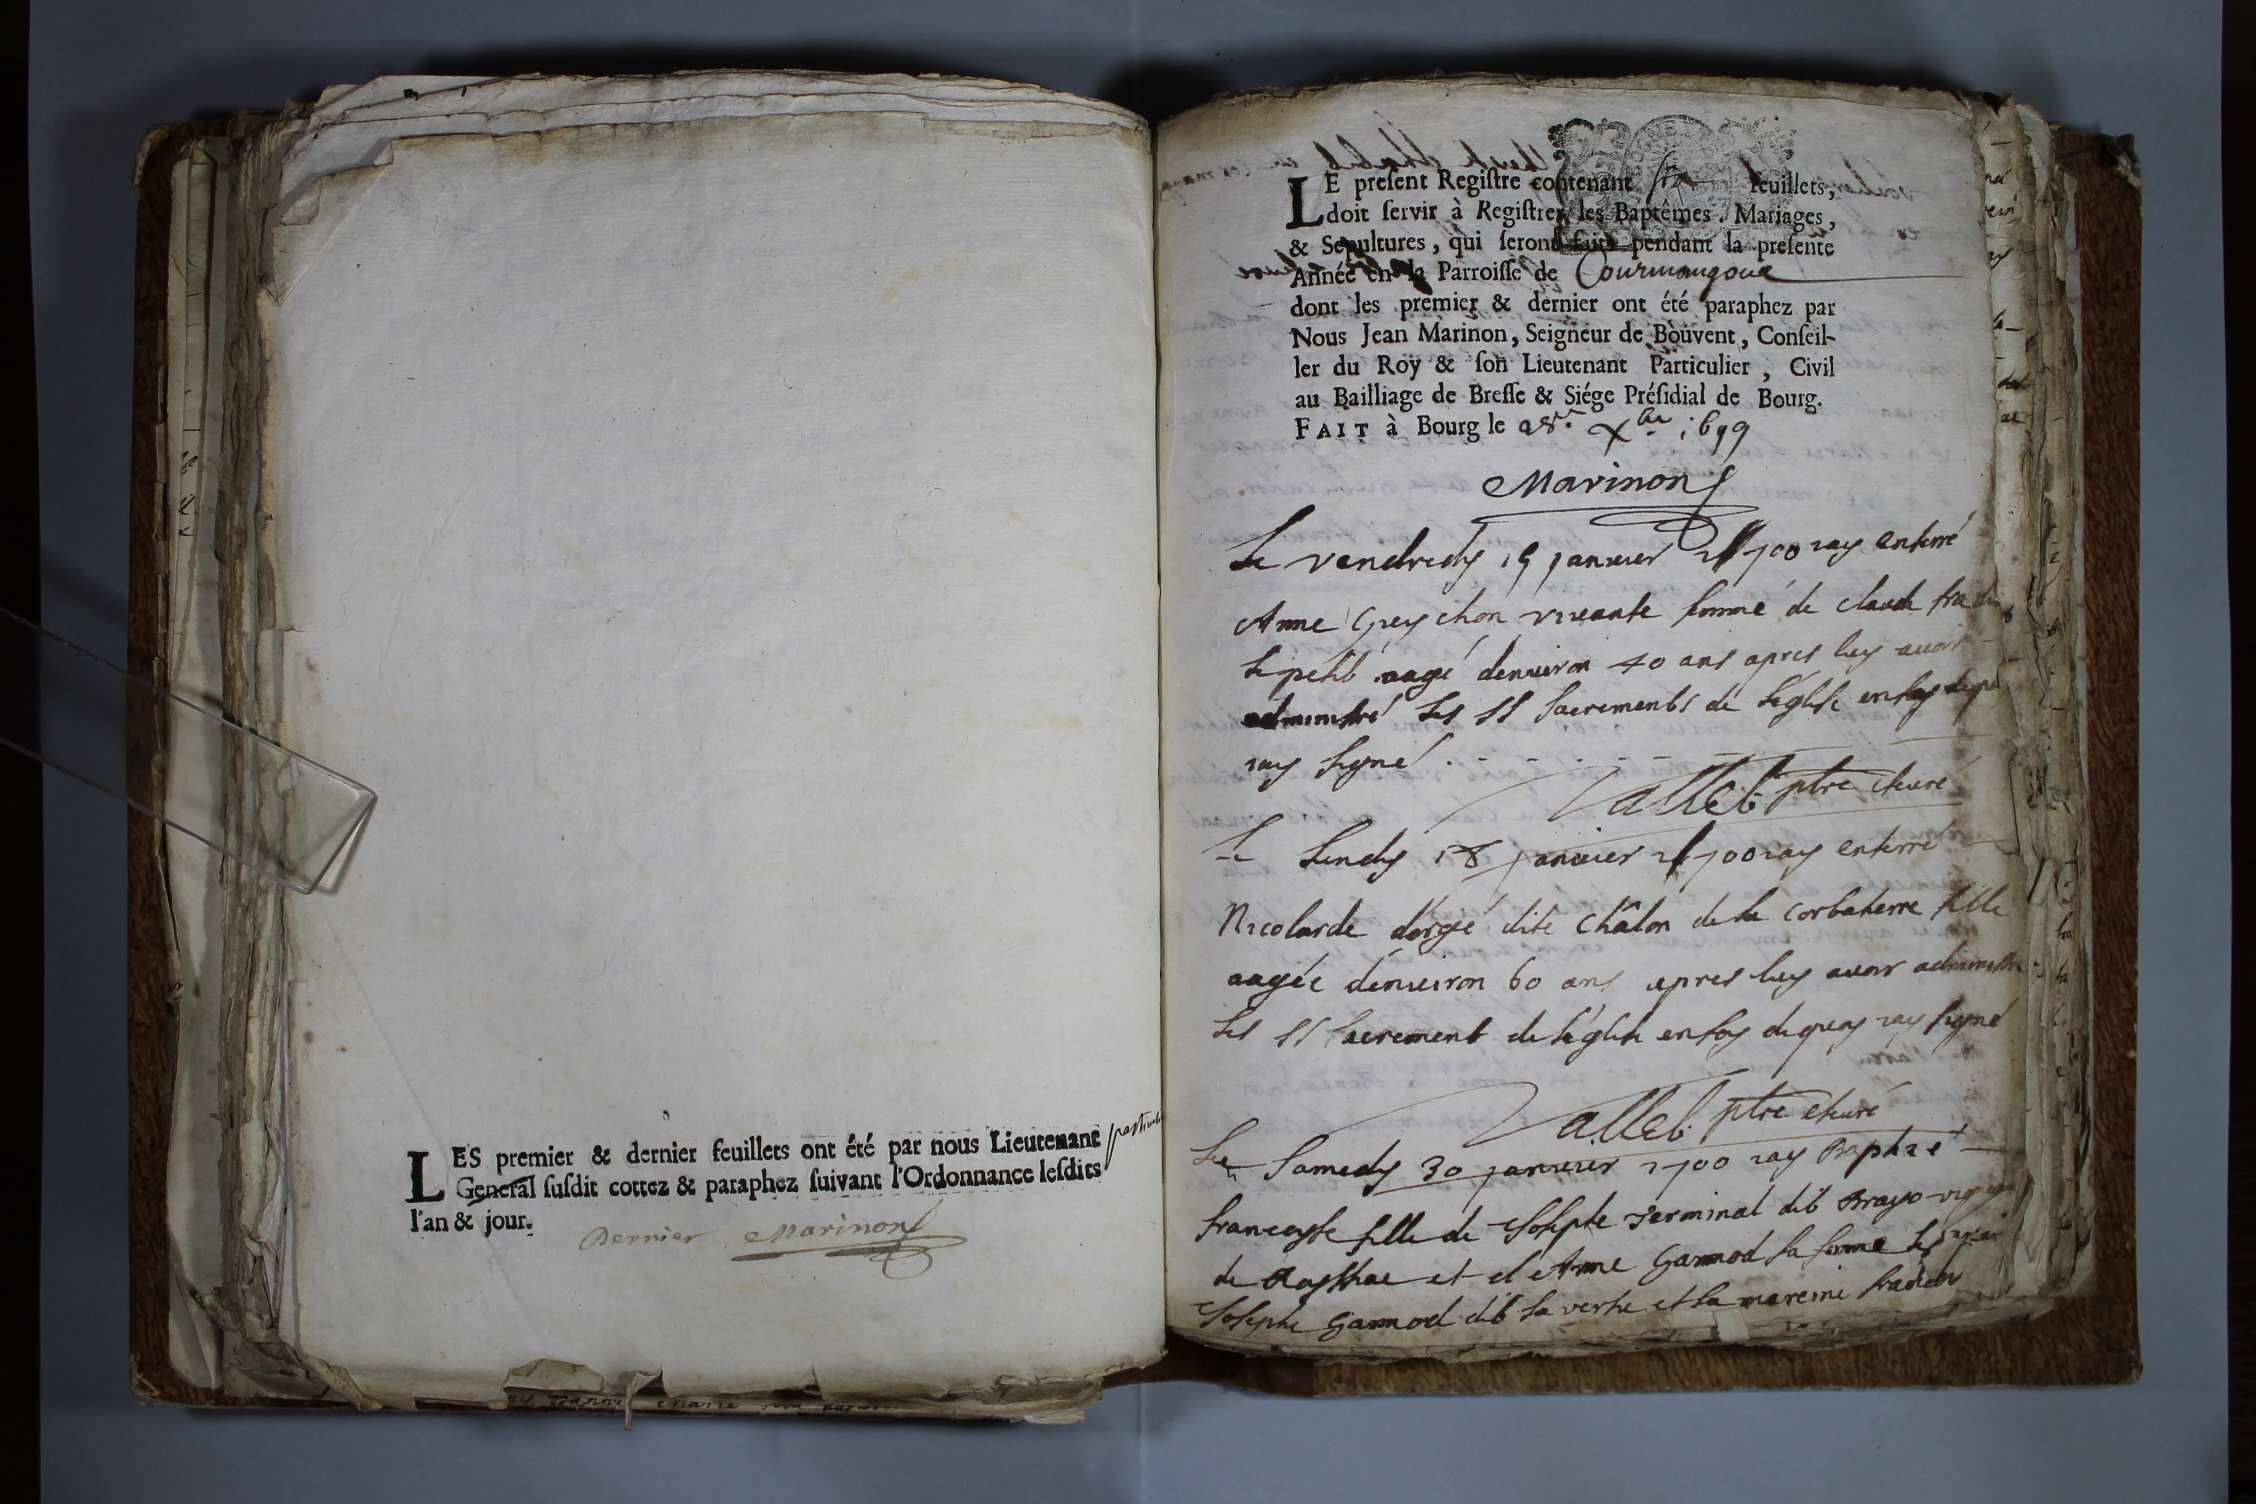 LES premier & dernier feuillets ont été par nous Lieutenant particulier
General susdit cottez & paraphez suivant l'Ordonnance lesdits
l'an & jour.
Dernier Marinon
LE present Registre contenant six feuillets,
doit servir à Registrer les Baptêmes, Mariages,
& Sepultures, qui seront faits pendant la presente
Année en la Parroisse de Courmangoux
dont les premier & dernier ont été paraphez par
Nous Jean Marinon, Seigneur de Bouvent, Conseil-
ler du Roy & son Lieutenant Particulier, Civil
au Bailliage de Bresse & Siége Présidial de Bourg.
FAIT à Bourg le 28e Xbre 1699
Marinon
Le vendredy 15 janvier 1700 iay enterré
Anne vivante femme de claude
le petit aagé denuiron 40 ans apres luy auoir
administré les SS sacrements de leglise en foy dequoy
iay signé
Vallet ptre &curé
Le Lundy 18 janvier 1700 iay enterré
Nicolarde dorgié dite châlon de la corbaterre fille
aagée denuiron 60 ans apres luy auoir administré
les SS sacrement de leglise en foy dequoy iay signé
Vallet ptre &curé
Le Samedy 30 janvier 1700 iay Baptizé
francoyse fille de Josepte dit
de et d Anne Gammod sa femme le parrein
Josepte Gammod dit la verte et la mareine